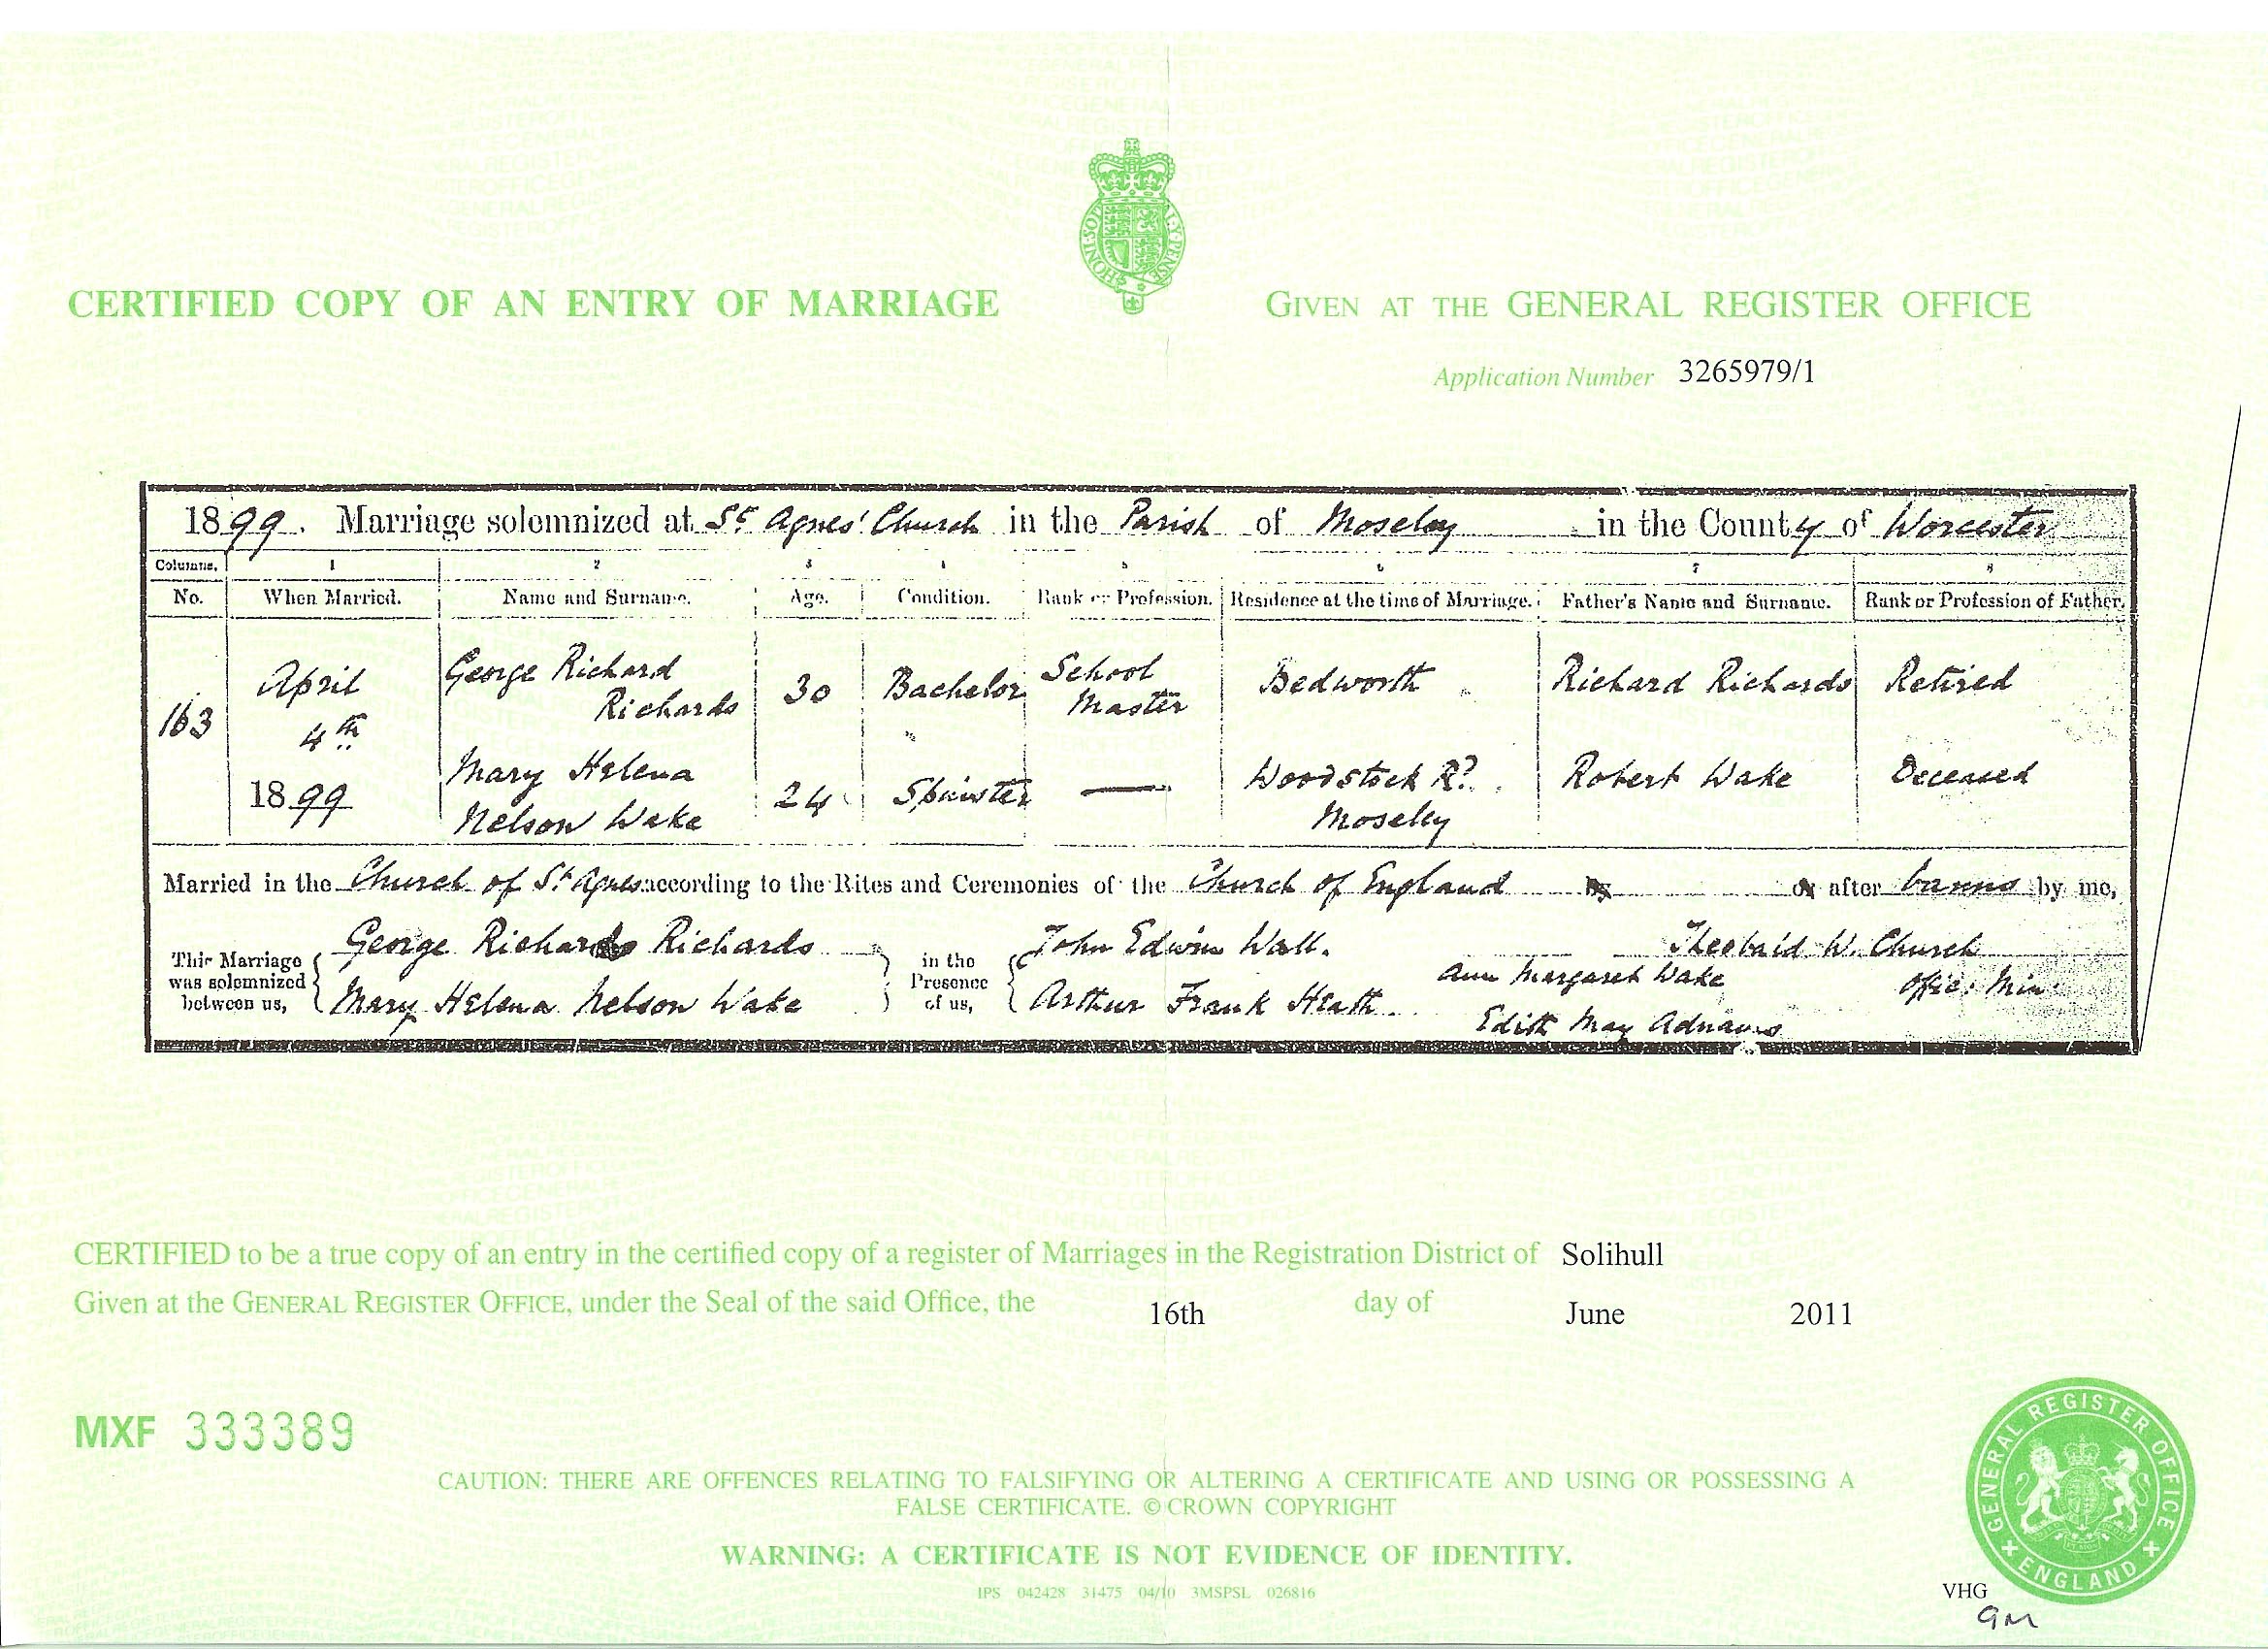 CERTIFIED COPY OF AN ENTRY OF MARRIAGE
GIVEN AT THE GENERAL REGISTER OFFICE
Application Number 3265979/1
1899. Marriage solemnized at St Agnes' Church in the Parish of Moseley in the County of Worcester
Columns. 1 2 3 4 5 6 7 8
No. When Married. Name and Surname. Age. Condition. Rank or Profession. Residence at the time of Marriage. Father's Name and Surname. Rank or Profession of Father.
163
April
4th
1899
George Richard
Richards
30 Bachelor School
Master
Bedworth Richard Richards Retired
Mary Helena
Nelson Wake
24 Spinster — Woodstock Rd
Moseley
Robert Wake Deceased
Married in the Church of St Agnes according to the Rites and Ceremonies of the Church of England by or after banns by me,
This Marriage
was solemnized
between us,
George Richard Richards
Mary Helena Nelson Wake
in the
Presence
of us,
John Edwin Wall.
Arthur Frank Heath
Ann Margaret Wake
Edith May Adnams
Theobald W. Church
Offic: Min:
CERTIFIED to be a true copy of an entry in the certified copy of a register of Marriages in the Registration District of Solihull
Given at the GENERAL REGISTER OFFICE, under the Seal of the said Office, the 16th day of June 2011
MXF 333389
CAUTION: THERE ARE OFFENCES RELATING TO FALSIFYING OR ALTERING A CERTIFICATE AND USING OR POSSESSING A
FALSE CERTIFICATE. © CROWN COPYRIGHT
WARNING: A CERTIFICATE IS NOT EVIDENCE OF IDENTITY.
IPS 042428 31475 04/10 3MSPSL 026816
GENERAL REGISTER OFFICE
ENGLAND
VHG